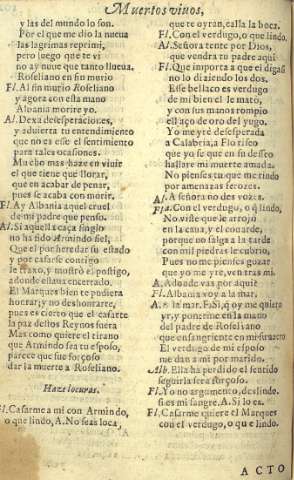 Muertos viuos,
y las del mundo lo son.
Por el que me dio la nueua
las lagrimas reprimi,
pero luego que te vi
no ay nuue que tanto llueua.
Roseliano en fin murio
Fl. Al fin murio Roseliano
y agora con esta mano
Albania morire yo.
Al. Dexa desesperaciones,
y aduierta tu entendimiento
que no es esse el sentimiento
para tales ocasiones.
Mucho mas haze en viuir
el que tiene que llorar,
que en acabar de penar,
pues se acaba con morir.
Fl. Ay Albania aquel cruel
de mi padre que penso.
Al. Si aquella caça siruio
no ha sido Armindo fiel,
Que el por heredar su estado
y por casarse contigo
le traxo, y mostrò el postigo,
adonde estaua encerrado.
El Marques bien te pudiera
honrar, y no deshonrarte,
pues es cierto que el casarte
la paz destos Reynos fuera
Mas como quiere el tirano
que Armindo sea tu esposo,
parece que fue forçoso
dar la muerte a Roseliano.
Haze locuras.
Fl. Casarme a mi con Armindo,
o que lindo, A. No seas loca,
que te oyran, calla la boca.
Fl. Con el verdugo, o que lindo.
Al. Señora tente por Dios,
que vendra tu padre aqui
Fl. Que importa a que el digaß
no lo diziendo los dos.
Esse bellaco es verdugo
de mi bien el le mato,
y con sus manos rompio
el laço de oro del yugo.
Yo me yrè desesperada
a Calabria, a Flo risco
que yo se que en su desseo
hallare mi muerte amada.
No pienses tu que me rindo
por amenazas ferozes.
Al. A señora no des vozes.
Fla. Con el verdugo, o que lindo,
No viste que le arrojò
en la caua, y el couarde,
porque no salga a la tarde
con mil piedras le cubrio,
Pues no me pienses gozar
que yo me yre, ven tras mi.
A. Adonde vas por aqui?
Fl. Albania voy a la mar,
A. a la mar. F. Si, q̃ oy me quiero
yr, y ponerme en la mano
del padre de Roseliano
que ensangriente en mi su azero
El verdugo de mi esposo
me dan a mi por marido.
Alb. Ella ha perdido el sentido
seguirla sera forçoso.
Fl. Yo no argumento, deslinde.
si es mi sangre, A. Si lo es.
Fl. Casarme quiere el Marques
con el verdugo, o que lindo.
ACTO